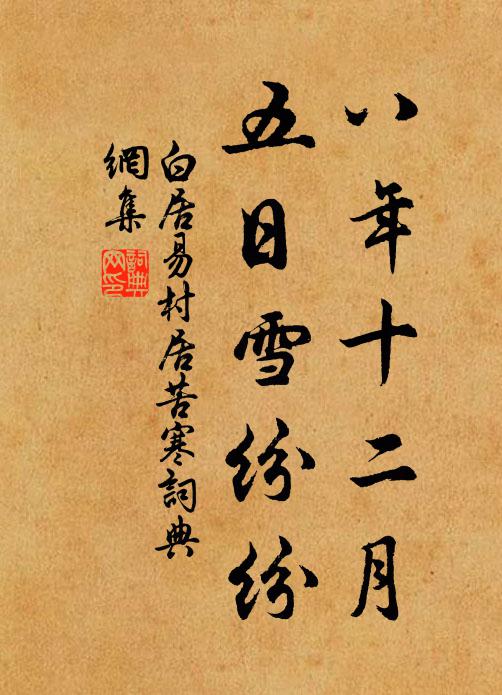 八年十二月
五日雪紛紛
白居易村居苦寒詞典
網集
詞典
网印